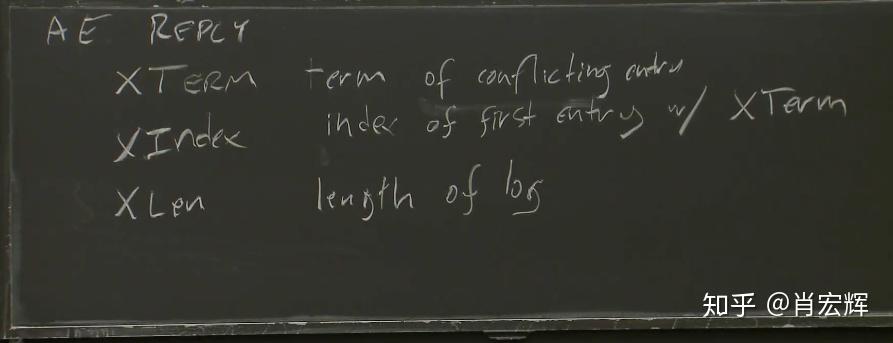 AE REPLY
XTERM term of conflicting entry
XIndex index of first entry w/ XTerm
XLen length of log
知乎 @肖宏辉